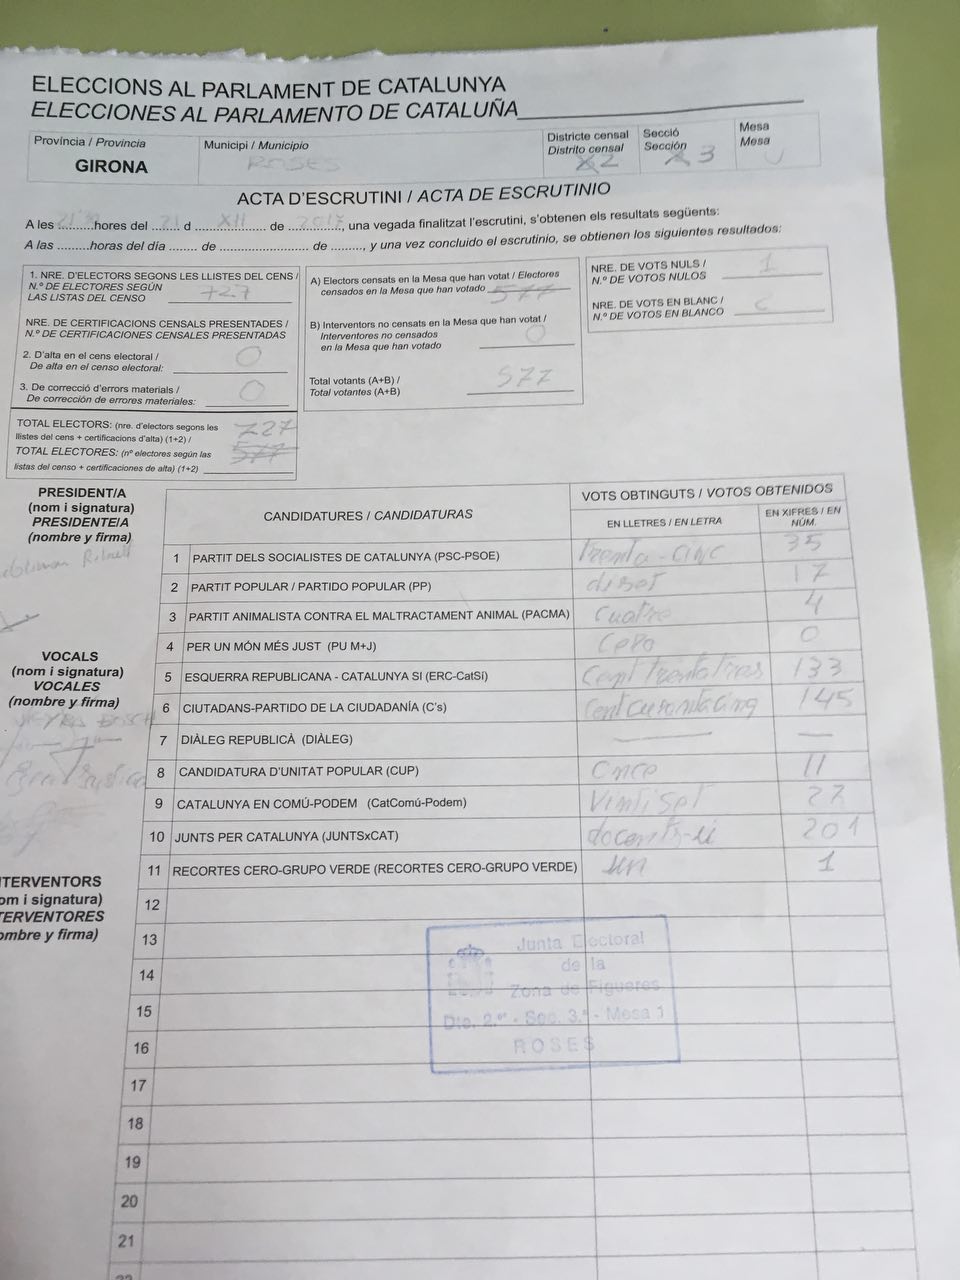 ELECCIONS AL PARLAMENT DE CATALUNYA
ELECCIONES AL PARLAMENTO DE CATALUÑA
Província / Provincia
GIRONA
Municipi / Municipio
ROSES
Districte censal
Distrito censal
2
Secció
Sección
3
Mesa
Mesa
U
ACTA D'ESCRUTINI / ACTA DE ESCRUTINIO
A les 21'30 hores del 21 d XII de 2017, una vegada finalitzat l'escrutini, s'obtenen els resultats següents:
A las .........horas del día ........ de ....................... de ........, y una vez concluido el escrutinio, se obtienen los siguientes resultados:
1. NRE. D'ELECTORS SEGONS LES LLISTES DEL CENS /
N.º DE ELECTORES SEGÚN
LAS LISTAS DEL CENSO 727
NRE. DE CERTIFICACIONS CENSALS PRESENTADES /
N.º DE CERTIFICACIONES CENSALES PRESENTADAS
2. D'alta en el cens electoral /
De alta en el censo electoral: 0
3. De correcció d'errors materials /
De corrección de errores materiales: 0
TOTAL ELECTORS: (nre. d'electors segons les
llistes del cens + certificacions d'alta) (1+2) / 727
TOTAL ELECTORES: (nº electores según las 577
listas del censo + certificaciones de alta) (1+2)
A) Electors censats en la Mesa que han votat / Electores
censados en la Mesa que han votado 577
B) Interventors no censats en la Mesa que han votat /
Interventores no censados
en la Mesa que han votado 0
Total votants (A+B) /
Total votantes (A+B) 577
NRE. DE VOTS NULS /
N.º DE VOTOS NULOS 1
NRE. DE VOTS EN BLANC /
N.º DE VOTOS EN BLANCO 2
PRESIDENT/A
(nom i signatura)
PRESIDENTE/A
(nombre y firma)
VOCALS
(nom i signatura)
VOCALES
(nombre y firma)
NTERVENTORS
om i signatura)
TERVENTORES
ombre y firma)
CANDIDATURES / CANDIDATURAS
VOTS OBTINGUTS / VOTOS OBTENIDOS
EN LLETRES / EN LETRA
EN XIFRES / EN
NÚM.
1 PARTIT DELS SOCIALISTES DE CATALUNYA (PSC-PSOE) trenta-cinc 35
2 PARTIT POPULAR / PARTIDO POPULAR (PP) diset 17
3 PARTIT ANIMALISTA CONTRA EL MALTRACTAMENT ANIMAL (PACMA) cuatre 4
4 PER UN MÓN MÉS JUST (PU M+J) cero 0
5 ESQUERRA REPUBLICANA - CATALUNYA SI (ERC-CatSí) Cent trenta tres 133
6 CIUTADANS-PARTIDO DE LA CIUDADANÍA (C's) 145
7 DIÀLEG REPUBLICÀ (DIÀLEG) — —
8 CANDIDATURA D'UNITAT POPULAR (CUP) Once 11
9 CATALUNYA EN COMÚ-PODEM (CatComú-Podem) Vintiset 27
10 JUNTS PER CATALUNYA (JUNTSxCAT) 201
11 RECORTES CERO-GRUPO VERDE (RECORTES CERO-GRUPO VERDE) un 1
12
13
14
15
16
17
18
19
20
21
Junta Electoral
de la
Zona de Figueres
Dto. 2.º - Sec. 3.ª - Mesa 1
ROSES